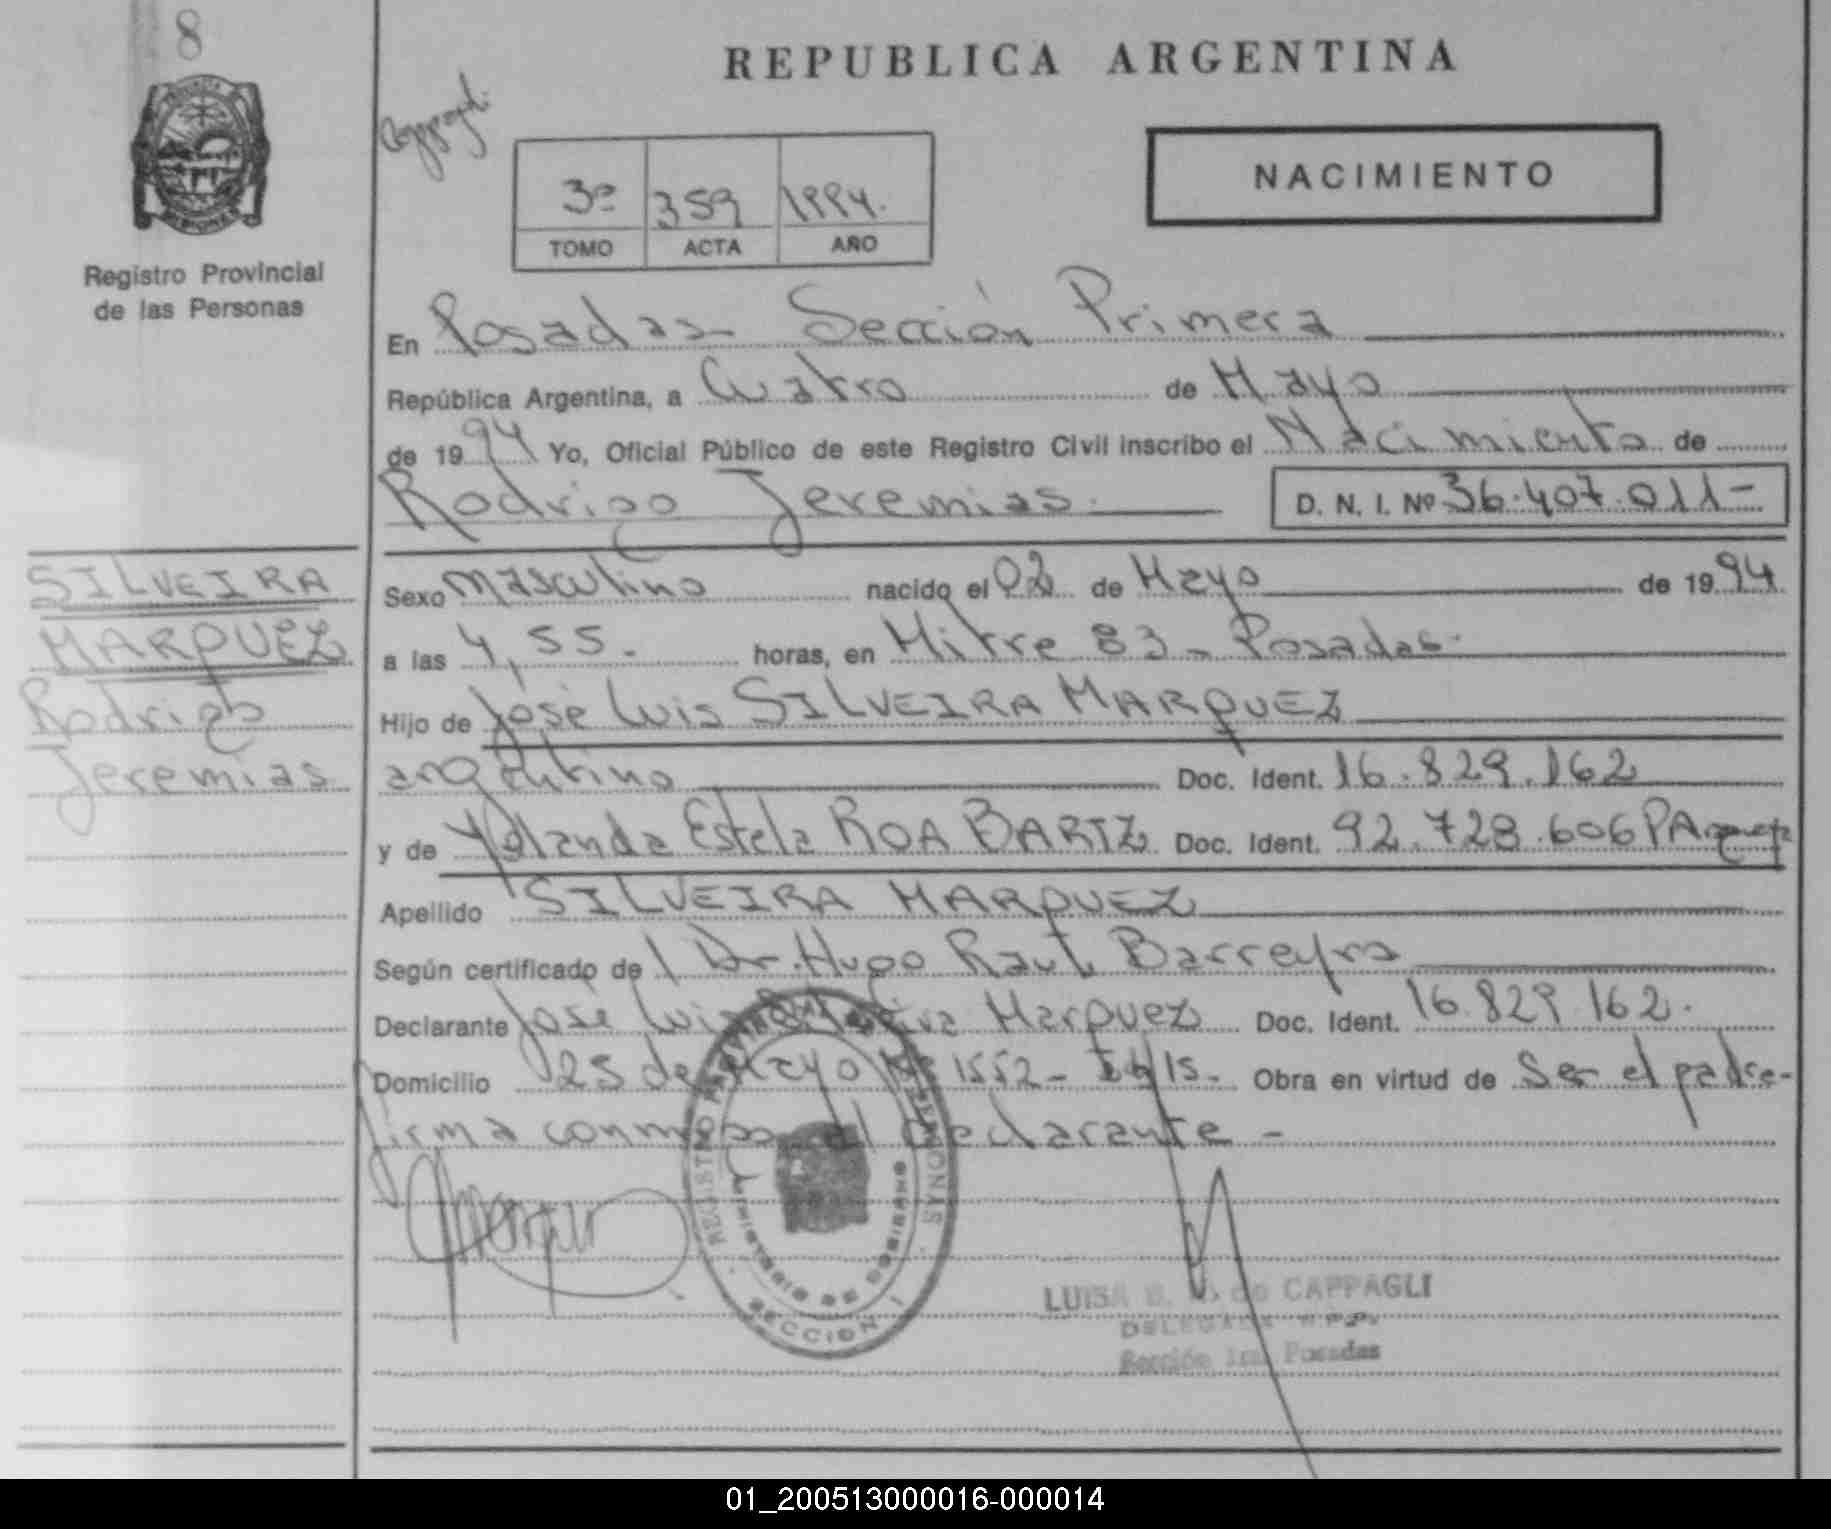 8
REPUBLICA ARGENTINA
NACIMIENTO
3º 359 1994.
TOMO ACTA AÑO
Registro Provincial
de las Personas
En Posadas Sección Primera
República Argentina, a Cuatro de Mayo
de 1994 Yo, Oficial Público de este Registro Civil inscribo el Nacimiento de
Rodrigo Jeremias. D. N. I. Nº 36.407.011-
SILVEIRA
MARQUEZ
Rodrigo
Jeremias
Sexo masculino nacido el 02 de Mayo de 1994
a las 4,55. horas, en Mitre 83 - Posadas.
Hijo de José Luis SILVEIRA MARQUEZ
argentino Doc. Ident. 16.829.162
y de Yolanda Estela ROA BARTZ Doc. Ident. 92.728.606
Apellido SILVEIRA MARQUEZ
Según certificado de Dr. Hugo Raul Barreyro
Declarante José Luis Silveira Marquez Doc. Ident. 16.829.162.
Domicilio 25 de Mayo Nº 1552 - Obra en virtud de Ser el padre-
firma conmigo el declarante -
REGISTRO PROVINCIAL DE LAS PERSONAS
MINISTERIO DE GOBIERNO
SECCION I
LUISA de CAPPAGLI
DELEGADA R.P.P.
Sección 1ra. Posadas
01_200513000016-000014